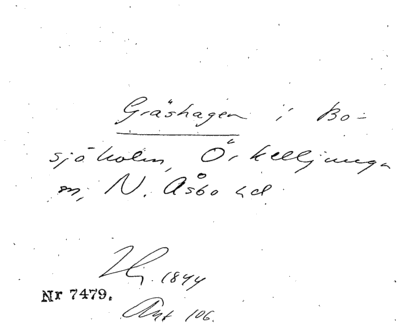 Gräshagen i Bo-
sjöholm, Örkelljunga
sn, N. Åsbo hd.
1844
Nr 7479.
Ant 106.